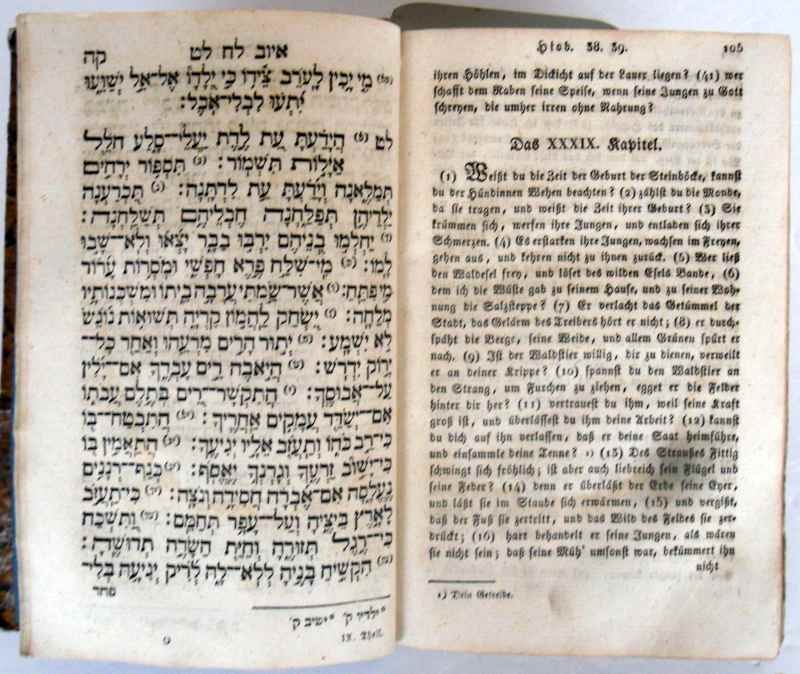 איוב לח לט קה
(מא) מִי יָכִין לָעֹרֵב צֵידוֹ כִּי יְלָדָו אֶל־אֵל יְשַׁוֵּעוּ
יִתְעוּ לִבְלִי־אֹכֶל:
לט (א) הֲיָדַעְתָּ עֵת לֶדֶת יַעֲלֵי־סָלַע חֹלֵל
אַיָּלוֹת תִּשְׁמֹר: (ב) תִּסְפֹּר יְרָחִים
תְּמַלֶּאנָה וְיָדַעְתָּ עֵת לִדְתָּנָה: (ג) תִּכְרַעְנָה
יַלְדֵיהֶן תְּפַלַּחְנָה חֶבְלֵיהֶם תְּשַׁלַּחְנָה:
(ד) יַחְלְמוּ בְנֵיהֶם יִרְבּוּ בַבָּר יָצְאוּ וְלֹא־שָׁבוּ
לָמוֹ: (ה) מִי־שִׁלַּח פֶּרֶא חָפְשִׁי וּמֹסְרוֹת עָרוֹד
מִי פִתֵּחַ: (ו) אֲשֶׁר־שַׂמְתִּי עֲרָבָה בֵיתוֹ וּמִשְׁכְּנוֹתָיו
מְלֵחָה: (ז) יִשְׂחַק לַהֲמוֹן קִרְיָה תְּשׁוּאוֹת נוֹגֵשׂ
לֹא יִשְׁמָע: (ח) יְתוּר הָרִים מִרְעֵהוּ וְאַחַר כָּל־
יָרוֹק יִדְרוֹשׁ: (ט) הֲיֹאבֶה רֵּים עָבְדֶךָ אִם־יָלִין
עַל־אֲבוּסֶךָ: (י) הֲתִקְשָׁר־רֵים בְּתֶלֶם עֲבֹתוֹ
אִם־יְשַׂדֵּד עֲמָקִים אַחֲרֶיךָ: (יא) הֲתִבְטַח־בּוֹ
כִּי־רַב כֹּחוֹ וְתַעֲזֹב אֵלָיו יְגִיעֶךָ: (יב) הֲתַאֲמִין בּוֹ
כִּי־יָשׁוּב זַרְעֶךָ וְגָרְנְךָ יֶאֱסֹף: (יג) כְּנַף־רְנָנִים
נֶעֱלָסָה אִם־אֶבְרָה חֲסִידָה וְנֹצָה: (יד) כִּי־תַעֲזֹב
לָאָרֶץ בֵּצֶיהָ וְעַל־עָפָר תְּחַמֵּם: (טו) וַתִּשְׁכַּח
כִּי־רֶגֶל תְּזוּרֶהָ וְחַיַּת הַשָּׂדֶה תְּדוּשֶׁהָ:
(טז) הִקְשִׁיחַ בָּנֶיהָ לְּלֹא־לָהּ לְרִיק יְגִיעָהּ בְּלִי־
פחד
*ילדיו ק׳ *ישיב ק׳
IX. Theil.
Hiob. 38. 39. 105
ihren Höhlen, im Dickicht auf der Lauer liegen? (41) wer
schafft dem Raben seine Speise, wenn seine Jungen zu Gott
schreyen, die umher irren ohne Nahrung?
Das XXXIX. Kapitel.
(1) Weißt du die Zeit der Geburt der Steinböcke, kannst
du der Hündinnen Wehen beachten? (2) zählst du die Monde,
da sie tragen, und weißt die Zeit ihrer Geburt? (3) Sie
krümmen sich, werfen ihre Jungen, und entladen sich ihrer
Schmerzen. (4) Es erstarken ihre Jungen, wachsen im Freyen,
gehen aus, und kehren nicht zu ihnen zurück. (5) Wer ließ
den Waldesel frey, und löset des wilden Esels Bande, (6)
dem ich die Wüste gab zu seinem Hause, und zu seiner Woh-
nung die Salzsteppe? (7) Er verlacht das Getümmel der
Stadt, das Gelärm des Treibers hört er nicht; (8) er durch-
späht die Berge, seine Weide, und allem Grünen spürt er
nach. (9) Ist der Waldstier willig, dir zu dienen, verweilt
er an deiner Krippe? (10) spannst du den Waldstier an
den Strang, um Furchen zu ziehen, egget er die Felder
hinter dir her? (11) vertrauest du ihm, weil seine Kraft
groß ist, und überlässest du ihm deine Arbeit? (12) kannst
du dich auf ihn verlassen, daß er deine Saat heimführe,
und einsammle deine Tenne? 1) (13) Des Straußes Fittig
schwingt sich fröhlich; ist aber auch liebreich sein Flügel und
seine Feder? (14) denn er überläßt der Erde seine Eyer,
und läßt sie im Staube sich erwärmen, (15) und vergißt,
daß der Fuß sie zertritt, und das Wild des Feldes sie zer-
drückt; (16) hart behandelt er seine Jungen, als wären
sie nicht sein; daß seine Müh' umsonst war, bekümmert ihn
nicht
1) Dein Getreide.